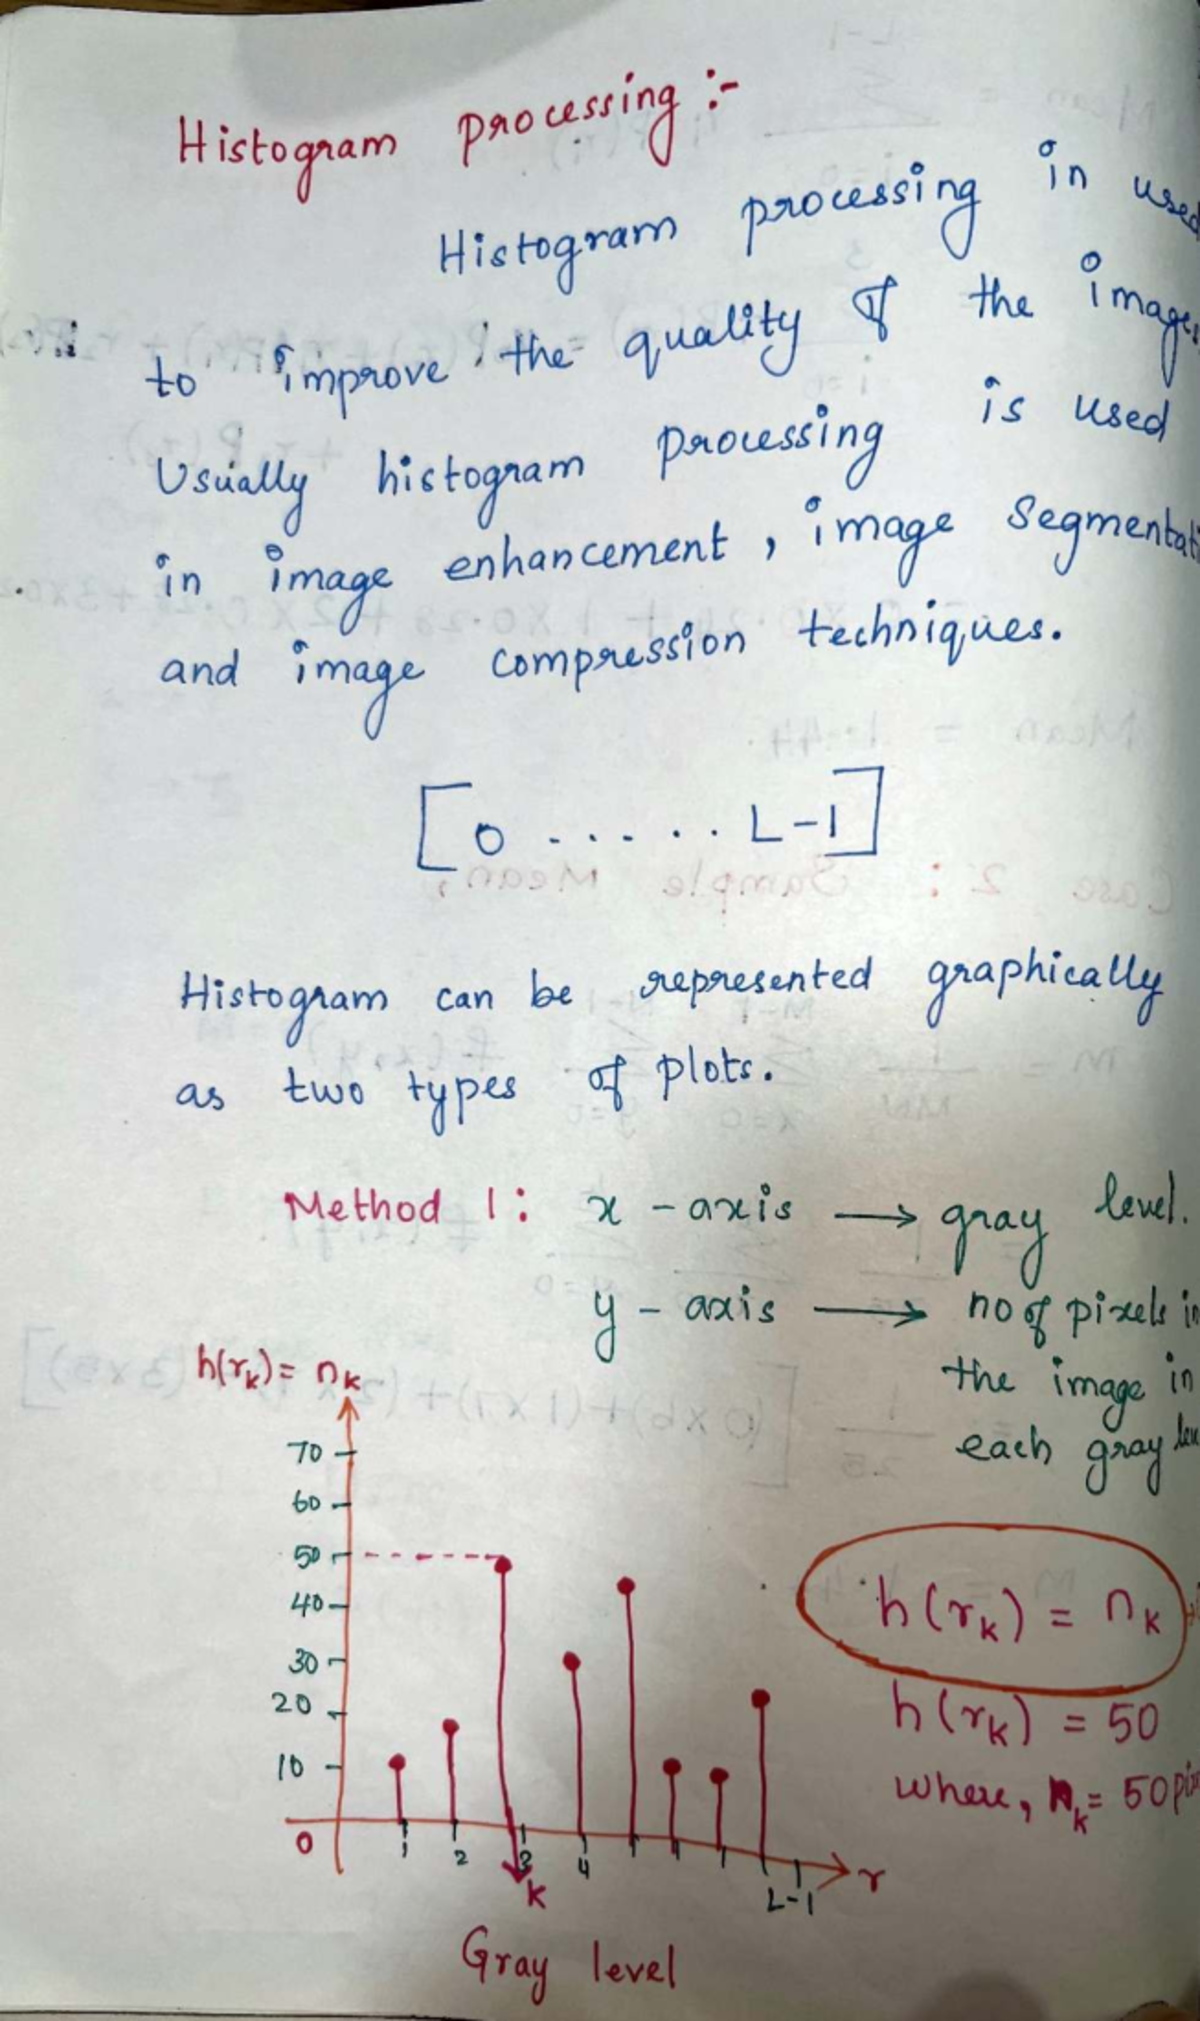 Histogram processing :-
Histogram processing in used
to improve the quality of the image.
Usually histogram processing is used
in image enhancement, image Segmentati
and image compression techniques.
[0 ...... L-1]
Histogram can be represented graphically
as two types of plots.
Method 1: x-axis → gray level.
y-axis → no of pixels in
the image in
each gray lev
h(rk) = nk
70
60
50
40
30
20
10
0
1 2 3 4 L-1 r
k
Gray level
h(rk) = nk
h(rk) = 50
where, nk = 50 pix